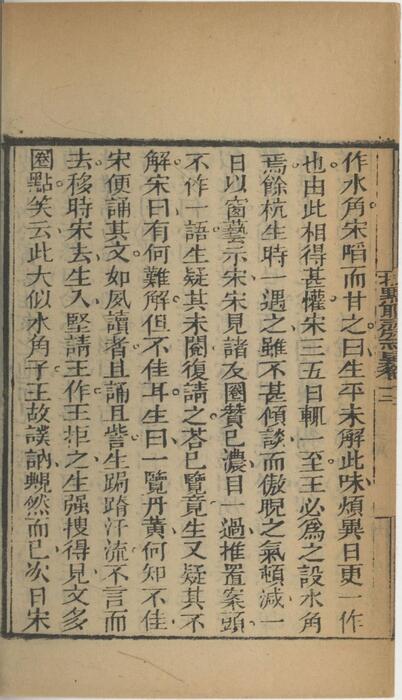 作水角宋啗而甘之曰生平未解此味煩異日更一作
也由此相得甚懽宋三五日輒一至王必爲之設水角
焉餘杭生時一遇之雖不甚傾談而傲睨之氣頓減一
日以窗藝示宋宋見諸友圈贊已濃目一過推置案頭
不作一語生疑其未閱復請之荅已覽竟生又疑其不
解宋曰有何難解但不佳耳生曰一覽丹黃何知不佳
宋便誦其文如夙讀者且誦且訾生跼蹐汗流不言而
去移時宋去生入堅請王作王拒之生强搜得見文多
圈點笑云此大似水角子王故樸訥覥然而已次日宋
點聊齋志異卷